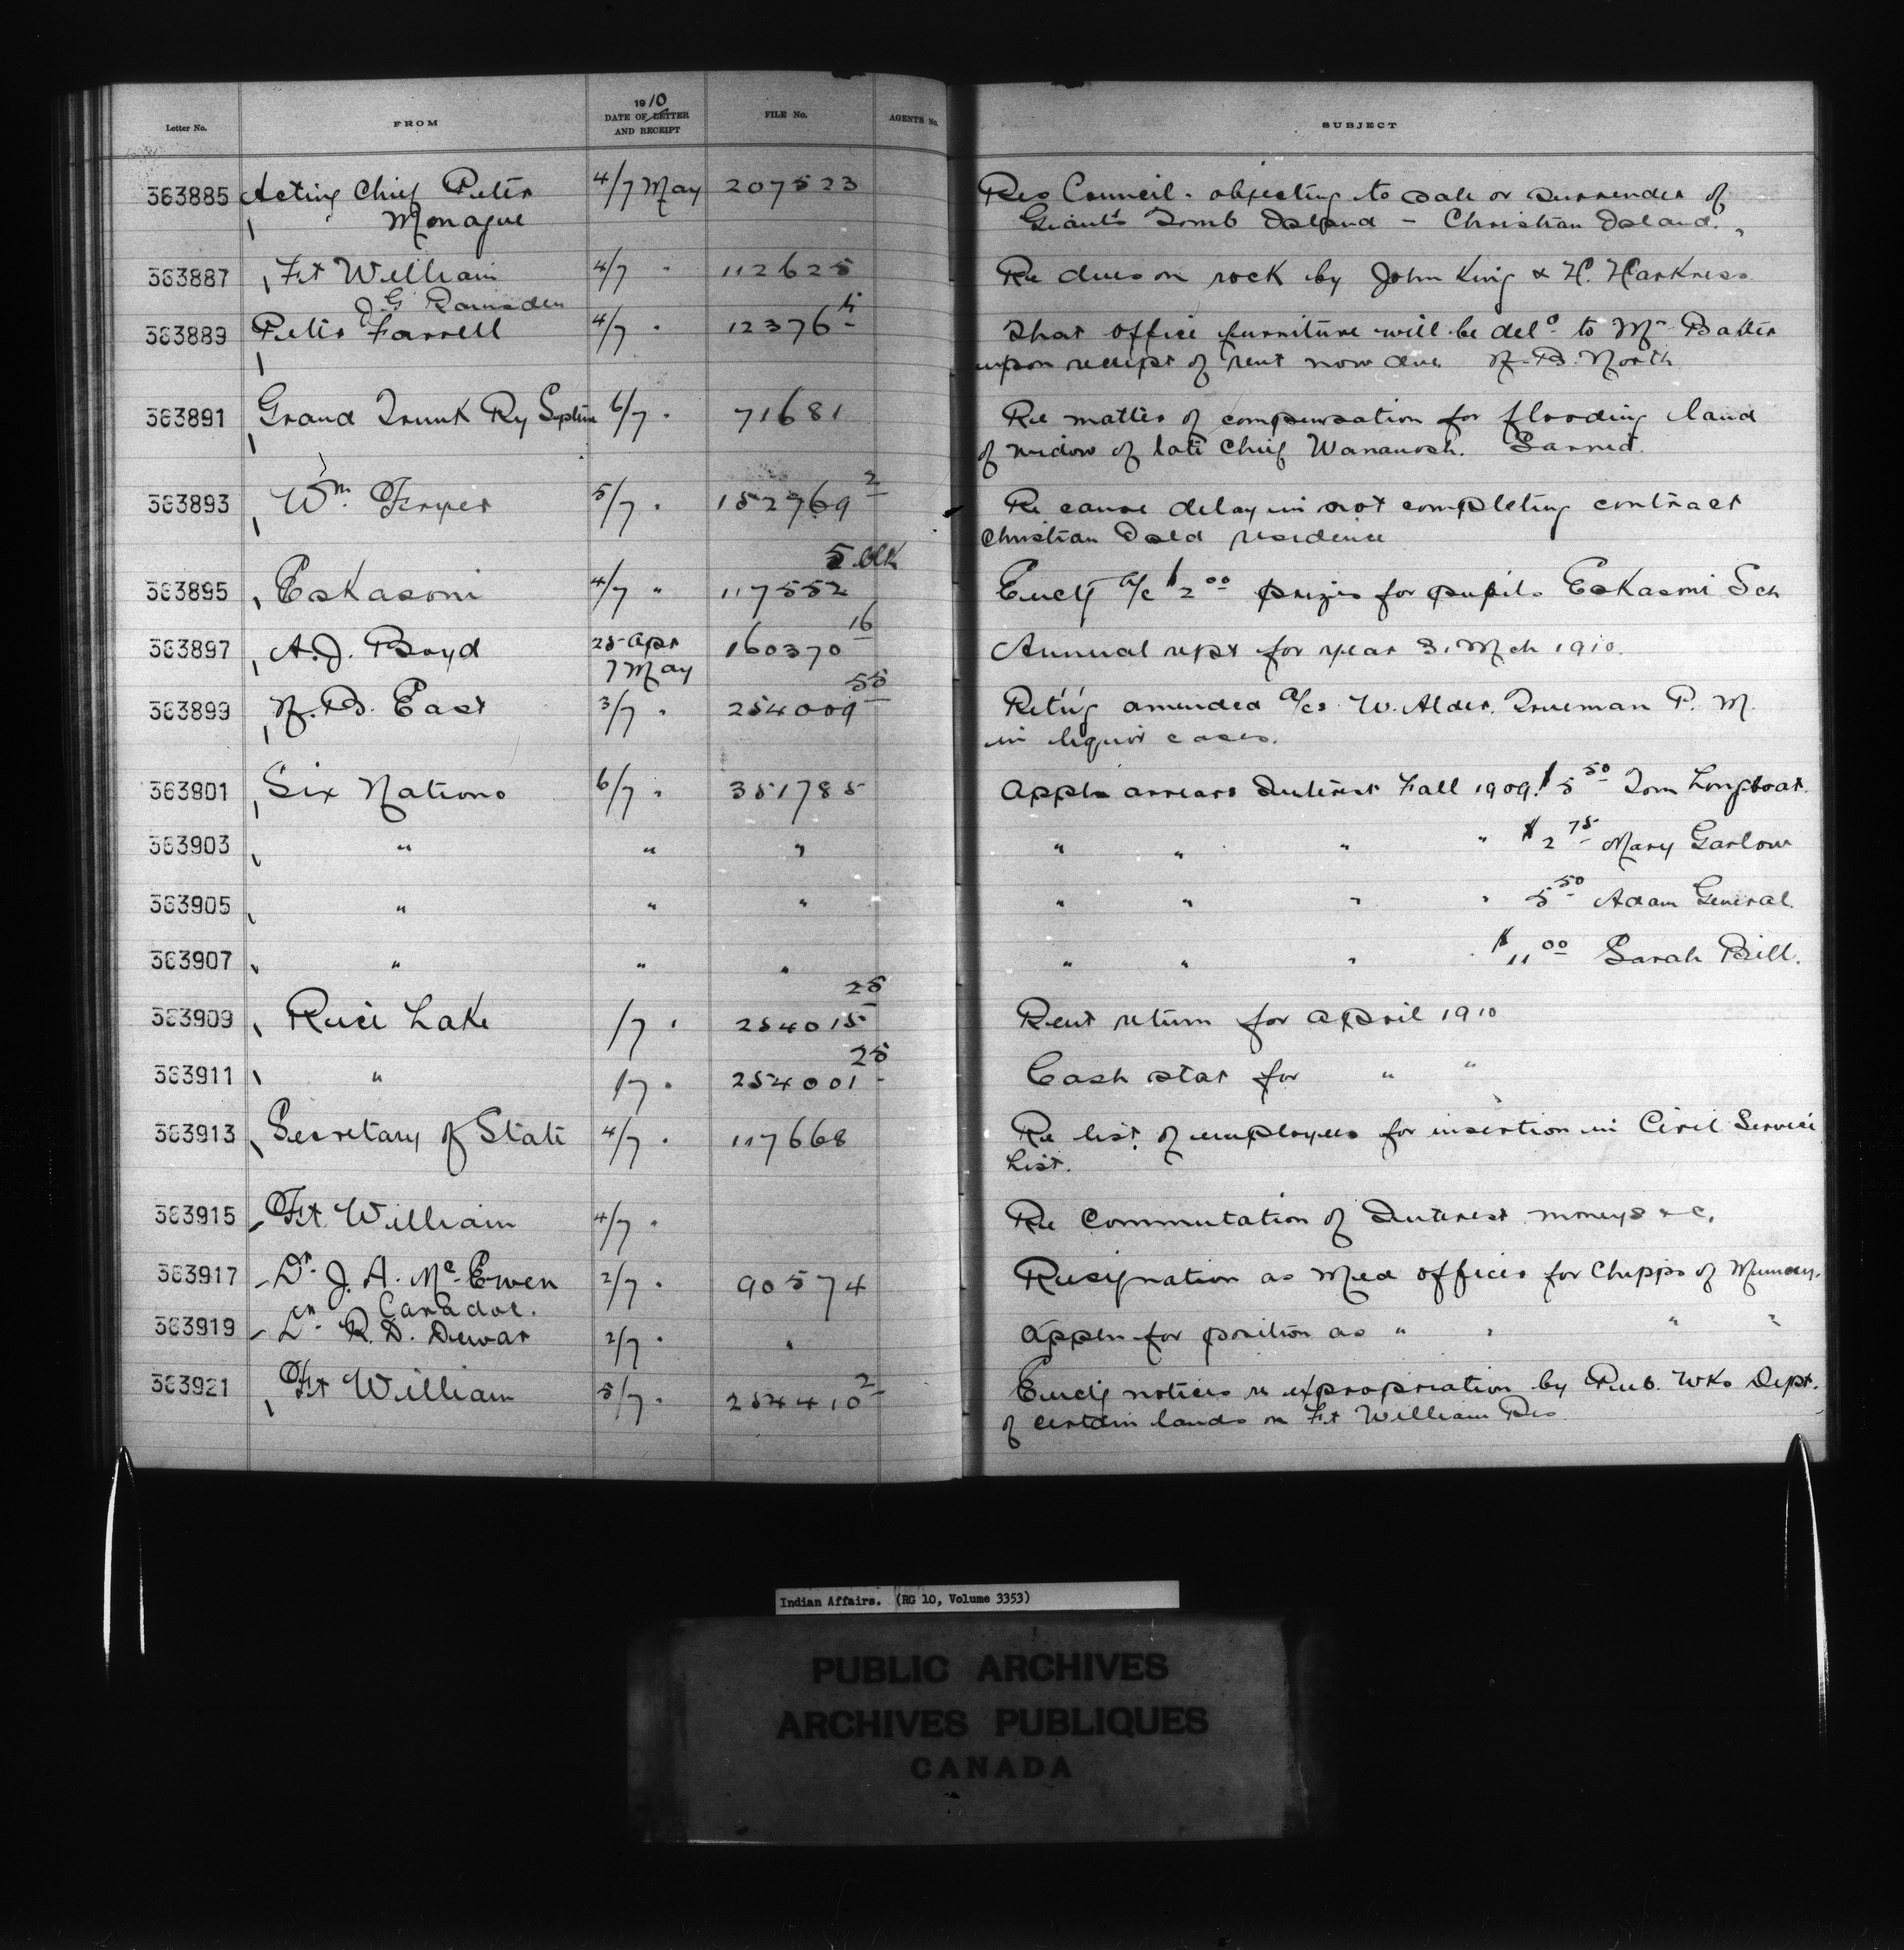 Letter No. FROM 1910 DATE OF LETTER AND RECEIPT FILE No. AGENTS No. SUBJECT
363885 Acting Chief Peter 4/7 May 207523 Res Council - objecting to sale or surrender of
Monague Giants Tomb Island - Christian Island.
363887 Ft William 4/7 " 112625 Re dues on rock by John King & H. Harkness
J G Ramsden
363889 Peter Farrell 4/7 " 12376 That office furniture will be deld to Mr Batter
upon receipt of rent now due N.B. North
363891 Grand Trunk Ry System 6/7 " 71681 Re matter of compensation for flooding land
of widow of late Chief Wananosh. Sarnia.
363893 Wm Fryer 5/7 " 152769 2 Re cause delay in not completing contract
Christian Isld residence
5 blk
363895 Eskasoni 4/7 " 117552 Enclg a/c $2 00 prizes for pupils Eskasoni Sch
363897 A.J. Boyd 25 Apr 160370 16 Annual rept for year 31 Mch 1910.
7 May
363899 N.B. East 3/7 " 254009 55 Ret'g amended a/cs W. Alder Trueman P. M.
in liquor cases.
363901 Six Nations 6/7 " 351785 Appln arrears Interest Fall 1909. $5 50 Tom Longboat.
363903 " " " " " " " $2 75 Mary Garlow
363905 " " " " " " " 5 50 Adam General.
363907 " " " " " " " $11 00 Sarah Bill.
363909 Rice Lake /7 " 254015 25 Rent return for April 1910
363911 " /7 " 254001 25 Cash stat for " "
363913 Secretary of State 4/7 " 117668 Re list of employees for insertion in Civil Service
List.
363915 Ft William 4/7 " Re Commutation of Interest moneys &c.
363917 Dr J. A. McEwen 2/7 " 90574 Resignation as Med officer for Chipps of Muncey.
Caradoc.
363919 Dr R. D. Dewar 2/7 " " Appln for position as " " " "
363921 Ft William 5/7 " 254410 2 Enclg notices re expropriation by Pub. Wks Dept.
of certain lands on Ft William Res
Indian Affairs. (RG 10, Volume 3353)
PUBLIC ARCHIVES
ARCHIVES PUBLIQUES
CANADA